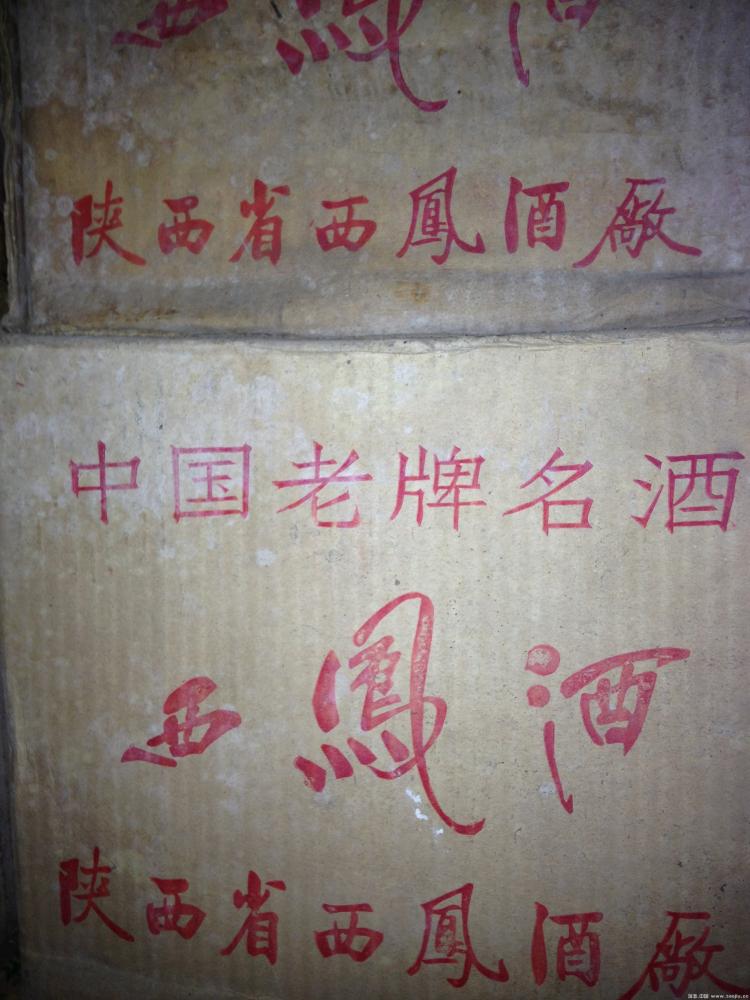 西鳳酒
陕西省西鳳酒廠
中国老牌名酒
西鳳酒
陕西省西鳳酒廠